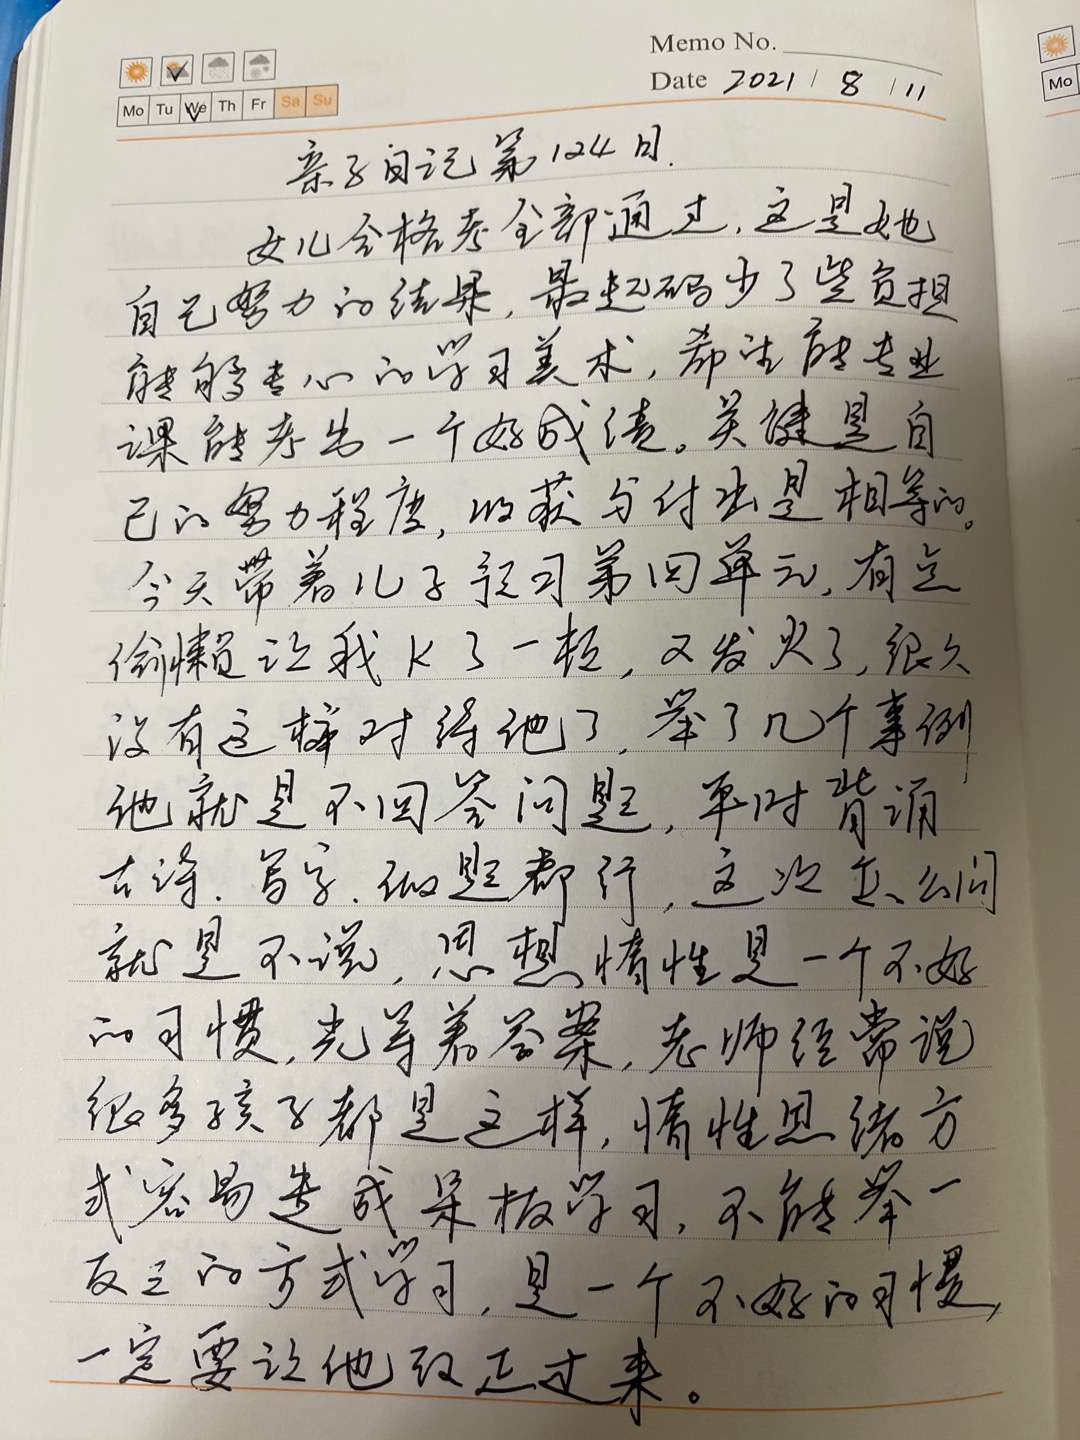 Memo No.
Date 2021 / 8 / 11
Mo Tu We Th Fr Sa Su
Mo
亲子日记第124日.
女儿合格考全部通过,这是她
自己努力的结果,最起码少了些负担
能够专心的学习美术,希望能专业
课能考出一个好成绩。关键是自
己的努力程度,收获与付出是相等的。
今天带着儿子预习第四单元,有点
偷懒让我K了一顿,又发火了,很久
没有这样对待他了,举了几个事例
他就是不回答问题,平时背诵
古诗.写字.做题都行,这次怎么问
就是不说,思想惰性是一个不好
的习惯,光等着答案,老师经常说
很多孩子都是这样,惰性思绪方
式容易造成呆板学习,不能举一
反三的方式学习,是一个不好的习惯,
一定要让他改正过来。